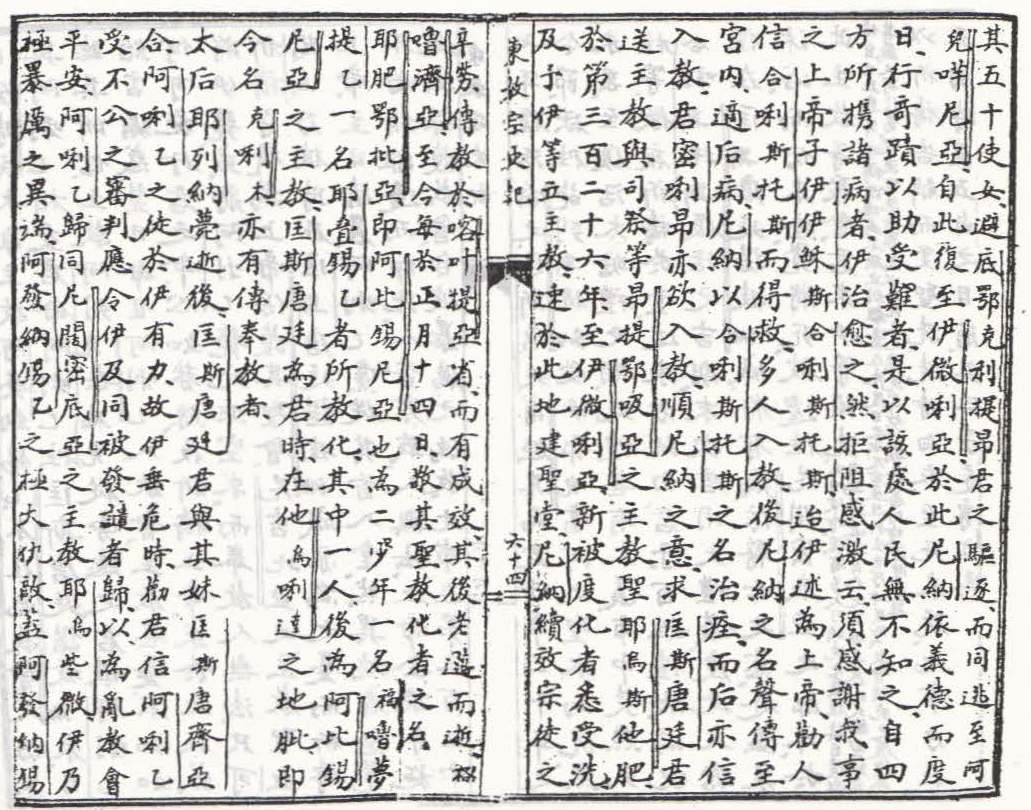 其五十使女避底鄂克利提昂君之驅逐而同逃至阿
兒哶尼亞自此復至伊微唎亞於此尼納依義德而度
日行奇蹟以助受難者是以該處人民無不知之自四
方所攜諸病者伊治愈之然拒阻感激云須感謝我事
之上帝子伊伊穌斯合唎斯托斯迨伊述為上帝勸人
信合唎斯托斯而得救多人入教後尼納之名聲傳至
宮内適后病尼納以合唎斯托斯之名治痊而后亦信
入教君密唎昂亦欲入教順尼納之意求匡斯唐廷君
送主教與司祭等昂提鄂吸亞之主教聖耶烏斯他肥
於第三百二十六年至伊微唎亞新被度化者悉受洗
及予伊等五主教速於此地建聖堂尼納續效宗徒之
東教宗史記
六十四
辛勞傳教於喀叶提亞省而有成效其後老邁而逝
嚕濟亞至今每於正月十四日敬其聖教化者之名
耶肥鄂批亞即阿此錫尼亞也為二少年一名福嚕夢
提乙一名耶疊錫乙者所教化其中一人後為阿比錫
尼亞之主教匡斯唐廷為君時在他烏唎達之地肶即
今名克唎木亦有傳奉教者
太后耶列納薨逝後匡斯唐廷君與其妹匡斯唐齊亞
合阿唎乙之徒於伊有力故伊垂危時勸君信阿唎乙
受不公之審判應令伊及同被發譴者歸以為亂教會
平安阿唎乙歸同尼闊密底亞之主教耶烏些微伊乃
極暴厲之異端阿發納錫乙之極大仇敵蓋阿發納錫